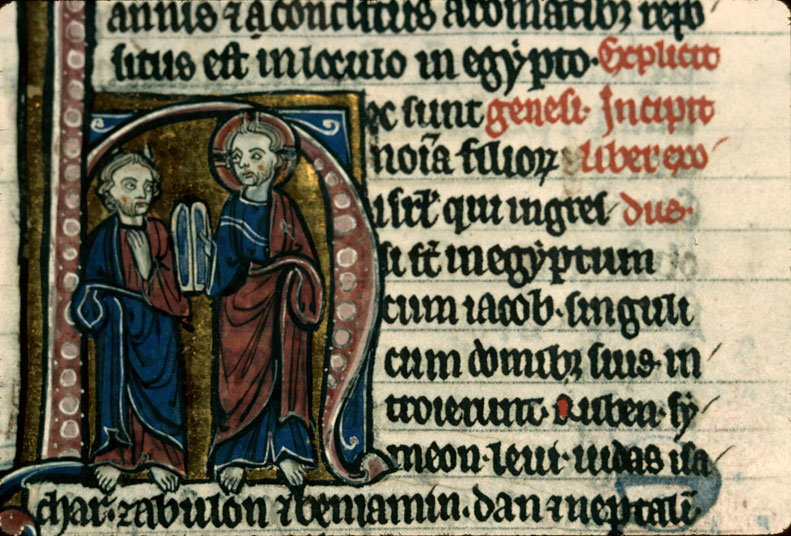 annis ⁊ a conditus aromatibꝫ repo
situs est in loculo in egypto. Explicit
ec sunt genesi. Incipit
noīa filioꝝ liber exo
isrl̄ qui ingres dus.
si st̄ in egyptum
cum iacob. singuli
cum domibꝫ suis. in
troierunt. Ruben. sy
meon. leui. iudas isa
char. zabulon ⁊ beniamin. dan ⁊ neptali.